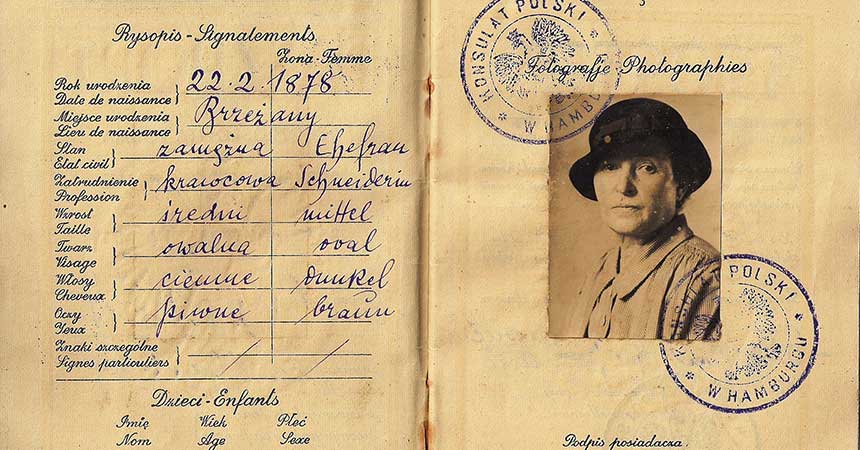 Rysopis - Signalements
Żona - Femme
Rok urodzenia
Date de naissance
22. 2. 1878
Miejsce urodzenia
Lieu de naissance
Brzeżany
Stan
Etat civil
zamężna Ehefrau
Zatrudnienie
Profession
krawcowa Schneiderin
Wzrost
Taille
średni mittel
Twarz
Visage
owalna oval
Włosy
Cheveux
ciemne dunkel
Oczy
Yeux
piwne braun
Znaki szczególne
Signes particuliers
/ /
Dzieci - Enfants
Imię Wiek Płeć
Nom Age Sexe
KONSULAT POLSKI
W HAMBURGU
Fotografje Photographies
KONSULAT POLSKI
W HAMBURGU
Podpis posiadacza